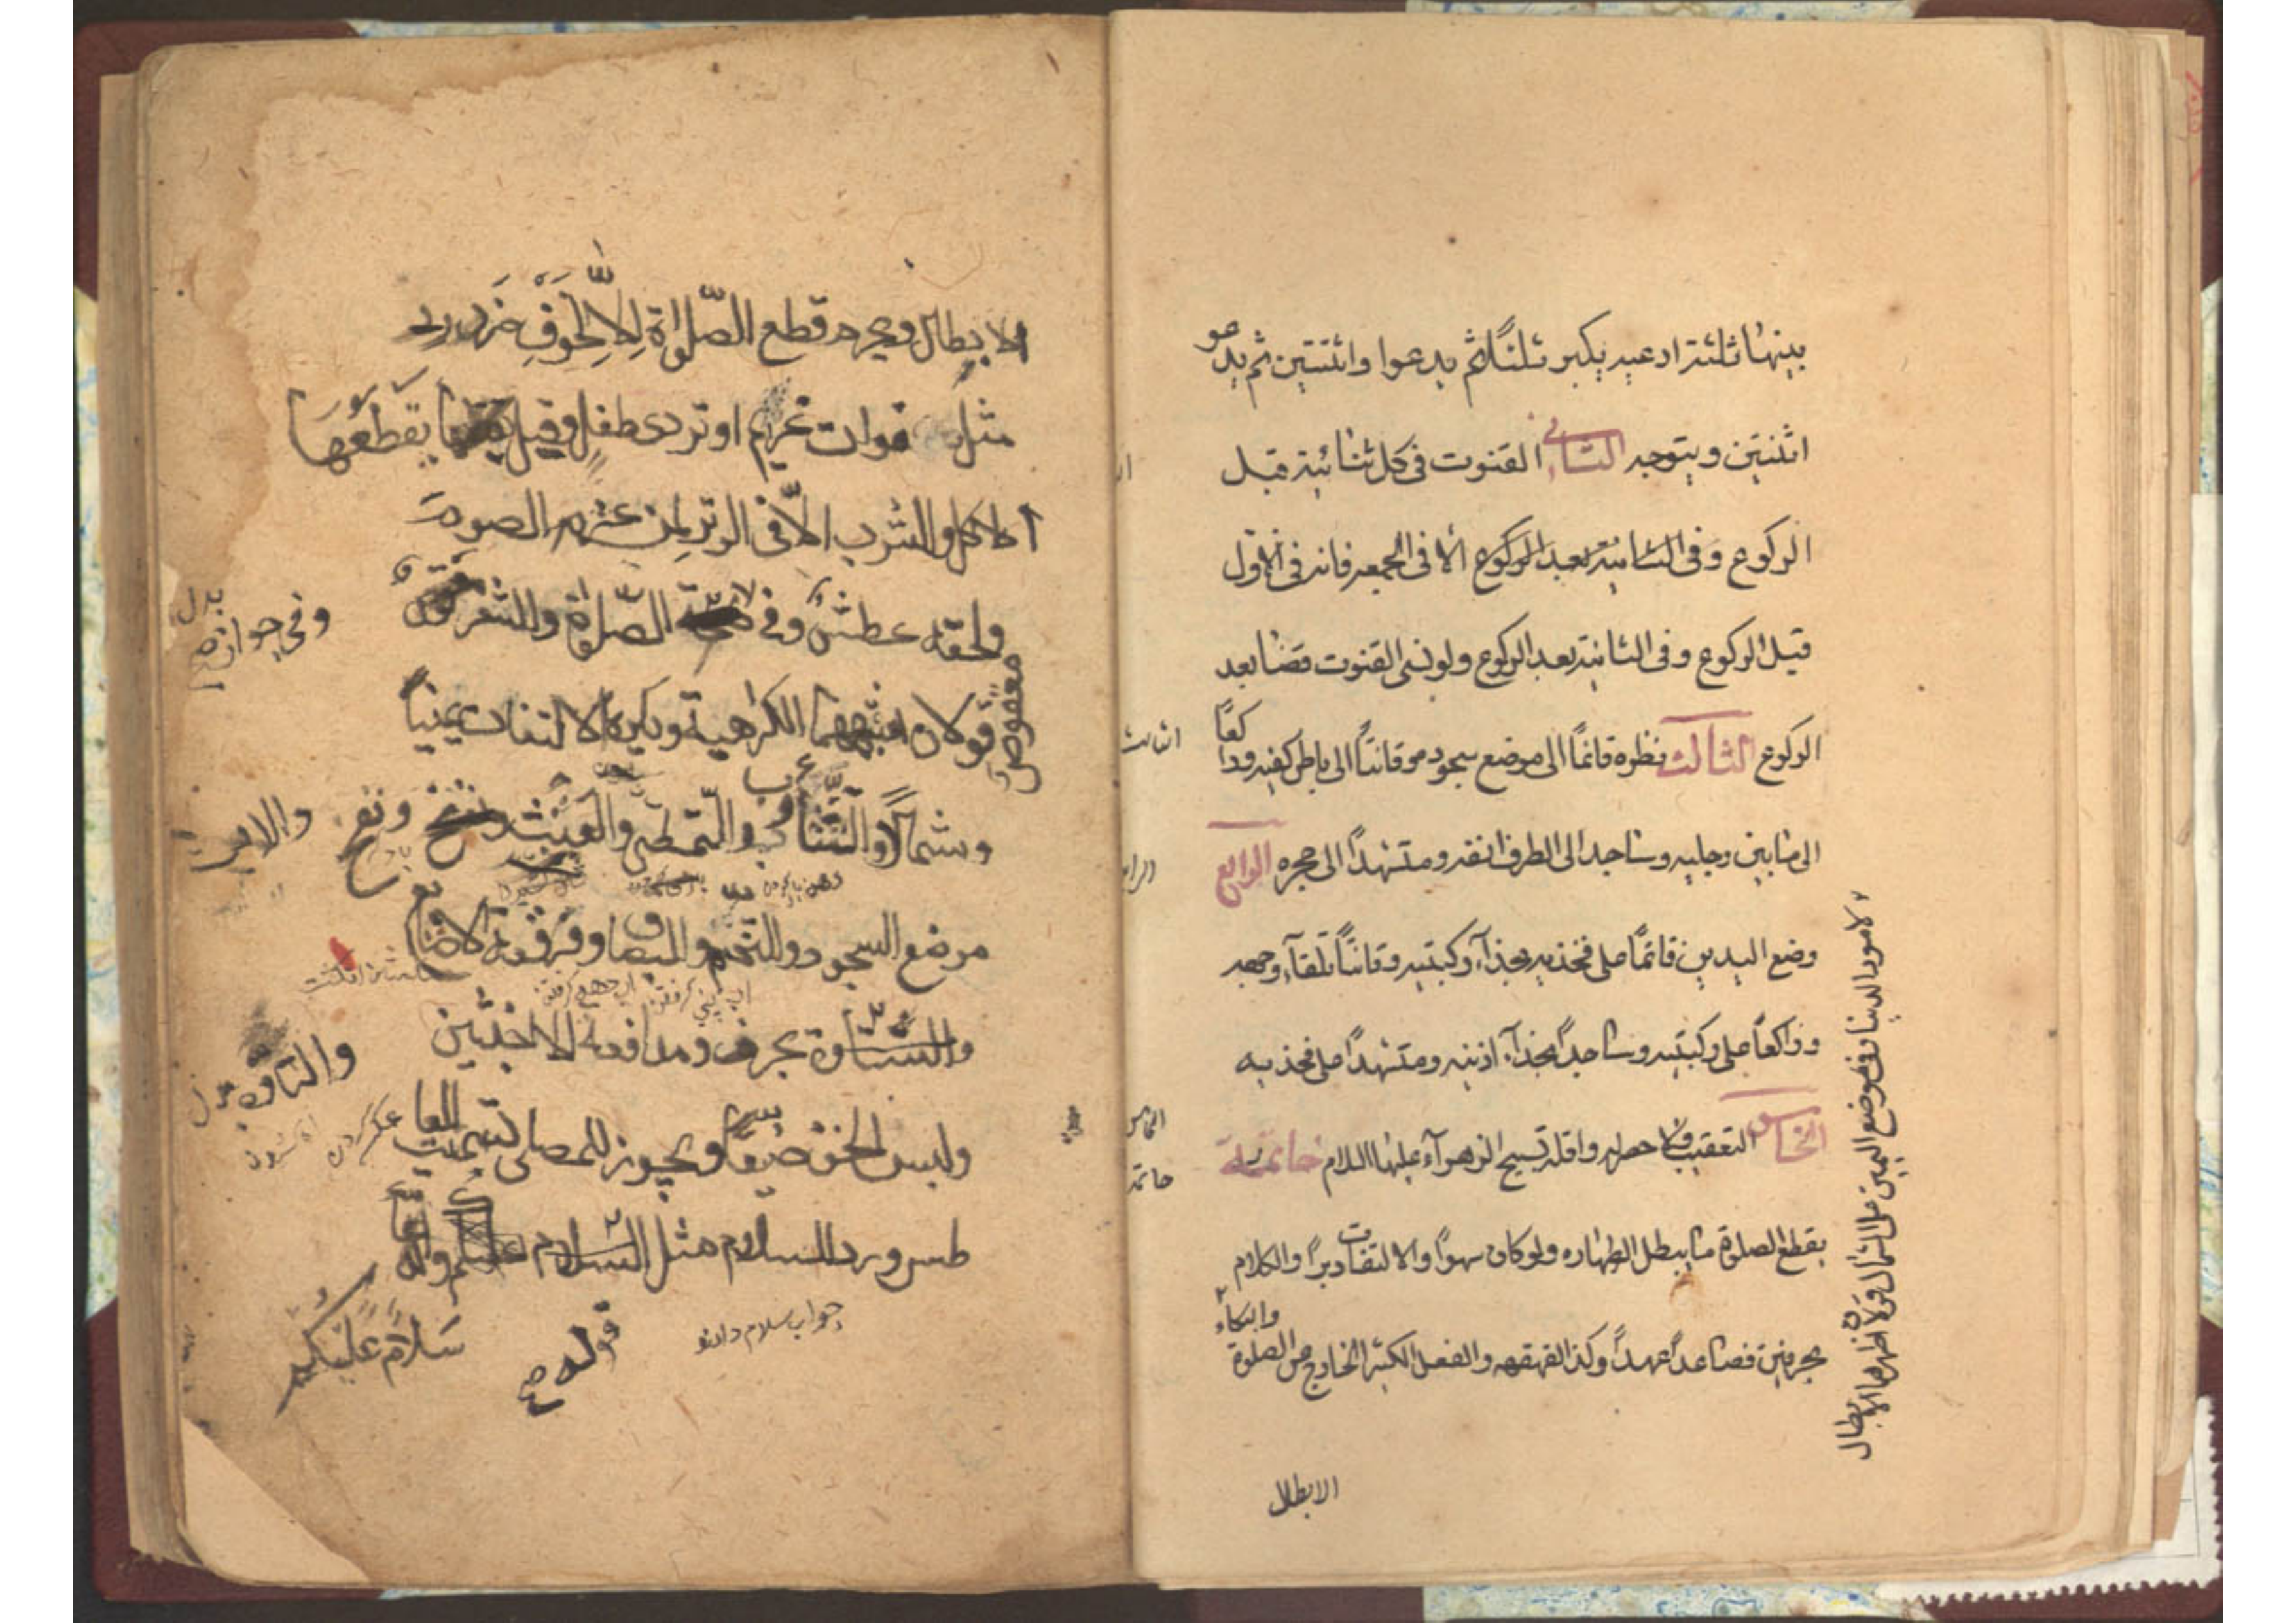 بينها ثلثة ادعيه يكبر ثلثاً ثم يدعوا واثنتين ثم يدعو
اثنتين ويتوجه الثانى القنوت فى كل ثنائية قبل
الركوع وفى الثانية بعد الركوع الا فى الجمعه فانه فى الاول
قبل الركوع وفى الثانية بعد الركوع ولو نسى القنوت قضا بعد
الركوع الثالث نظره قائماً الى موضع سجوده وقانتاً الى باطن كفيه وراكعاً
الى ما بين رجليه وساجدا الى الطرف انفه ومتشهداً الى حجره الرابع
وضع اليدين قائماً على فخذيه بحذآء ركبتيه وقانتاً تلقآء وجهه
وراكعاً على ركبتيه وساجداً بحذآء اذنيه ومتشهداً على فخذيه
الخامس التعقيب ولا حصر له واقله تسبيح الزهرآء عليها السلام خاتمة
يقطع الصلوة ما يبطل الطهاره ولو كان سهواً والالتفات دبراً والكلام
بحرفين فصاعداً عمداً وكذا القهقهه والفعل الكثير الخارج عن الصلوة
والبكاء
لامور الدنيا وفى وضع اليمين على الشمال قولان اظهرهما الابطال
الابطال
الثالث
خاتمة
الابطال ويحرم قطع الصلواة الا لخوف ضرر
مثل فوات غريم او تردى طفل وقيل يقطعها
الاكل والشرب الا فى الوتر لمن عزم الصوم
ولحقه عطش وفى الصلواة والشعر
معقوص
قولان اشبههما الكراهية ويكره الالتفات يميناً
وشمالاً والتثاؤب والتمطى والعبث ونفخ
موضع السجود والتنخم والبصاق وفرقعة الاصابع
والتأوه بحرف ومدافعة الاخبثين
ولبس الخف ضيقاً ويجوز للمصلى تسميت العا
طس ورد السلام مثل السلام عليكم
جواب سلام دادن
قوله
سلام عليكم
وفى جوازه
بدل
والتاوه